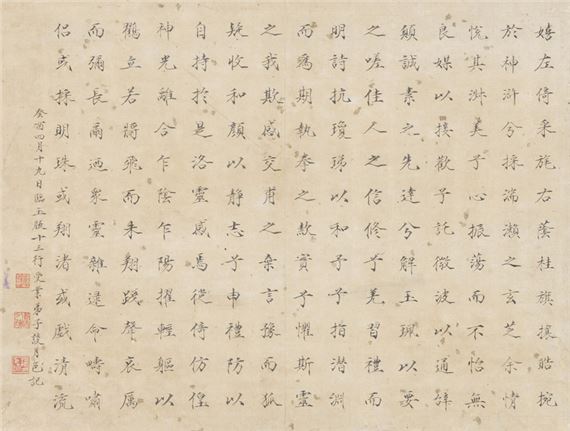 嬉左倚采旄右蔭桂旗攘皓捥
於神滸兮採湍瀨之玄芝余情
恱其淑美子心振蕩而不怡無
良媒以接歡子託微波以通辭
願誠素之先達兮解玉珮以要
之嗟佳人之信脩子羌習禮而
明詩抗瓊珶以和予子指潛淵
而爲期執拳之欵實子懼斯靈
之我欺感交甫之棄言豫而狐
疑收和顏以静志子申禮防以
自持於是洛靈感焉徙倚仿偟
神光離合乍陰乍陽擢輕軀以
鶴立若將飛而未翔踐聲哀厲
而彌長爾迺衆靈雜遝命疇嘯
侶或採明珠或翔渚或戲清流
癸酉四月十九日臨玉版十三行受業弟子月邑記